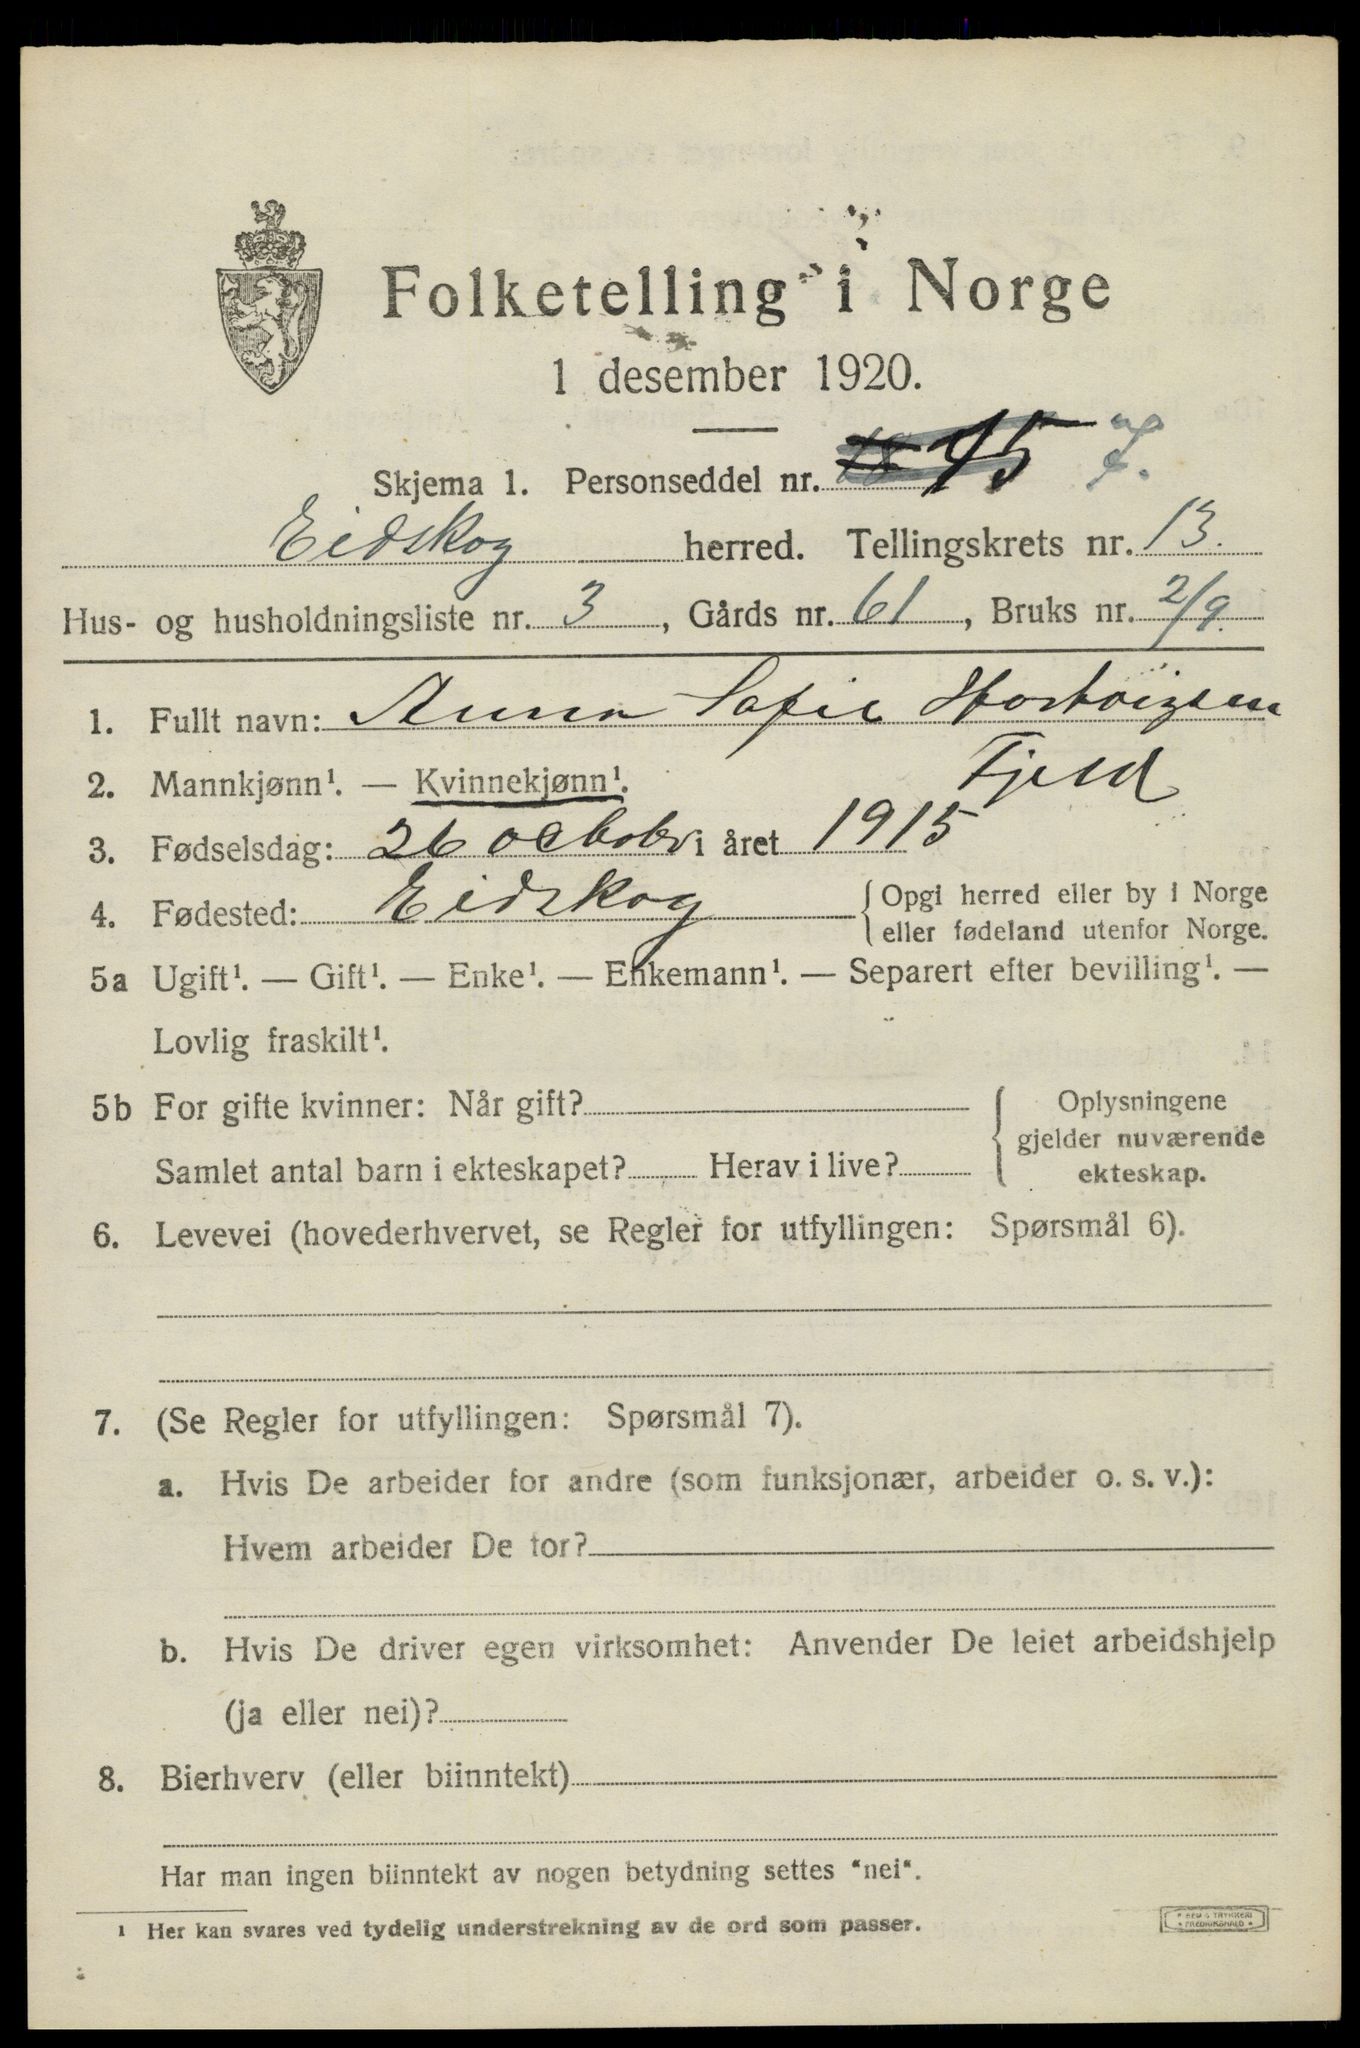 Folketelling i Norge
1 desember 1920.
Skjema 1. Personseddel nr. 15
Eidskog herred. Tellingskrets nr. 13.
Hus- og husholdningsliste nr. 3, Gårds nr. 61, Bruks nr. 2/9.
1. Fullt navn: Anna Sofie Hartvigsen
Fjeld
2. Mannkjønn¹. — Kvinnekjønn¹.
3. Fødselsdag: 26 october i året 1915
4. Fødested: Eidskog {Opgi herred eller by i Norge
eller fødeland utenfor Norge.
5a Ugift¹. — Gift¹. — Enke¹. — Enkemann¹. — Separert efter bevilling¹. —
Lovlig fraskilt¹.
5b For gifte kvinner: Når gift?
Samlet antal barn i ekteskapet? Herav i live?
{Oplysningene
gjelder nuværende
ekteskap.
6. Levevei (hovederhvervet, se Regler for utfyllingen: Spørsmål 6).
7. (Se Regler for utfyllingen: Spørsmål 7).
a. Hvis De arbeider for andre (som funksjonær, arbeider o. s. v.):
Hvem arbeider De for?
b. Hvis De driver egen virksomhet: Anvender De leiet arbeidshjelp
(ja eller nei)?
8. Bierhverv (eller biinntekt)
Har man ingen biinntekt av nogen betydning settes "nei".
¹ Her kan svares ved tydelig understrekning av de ord som passer.